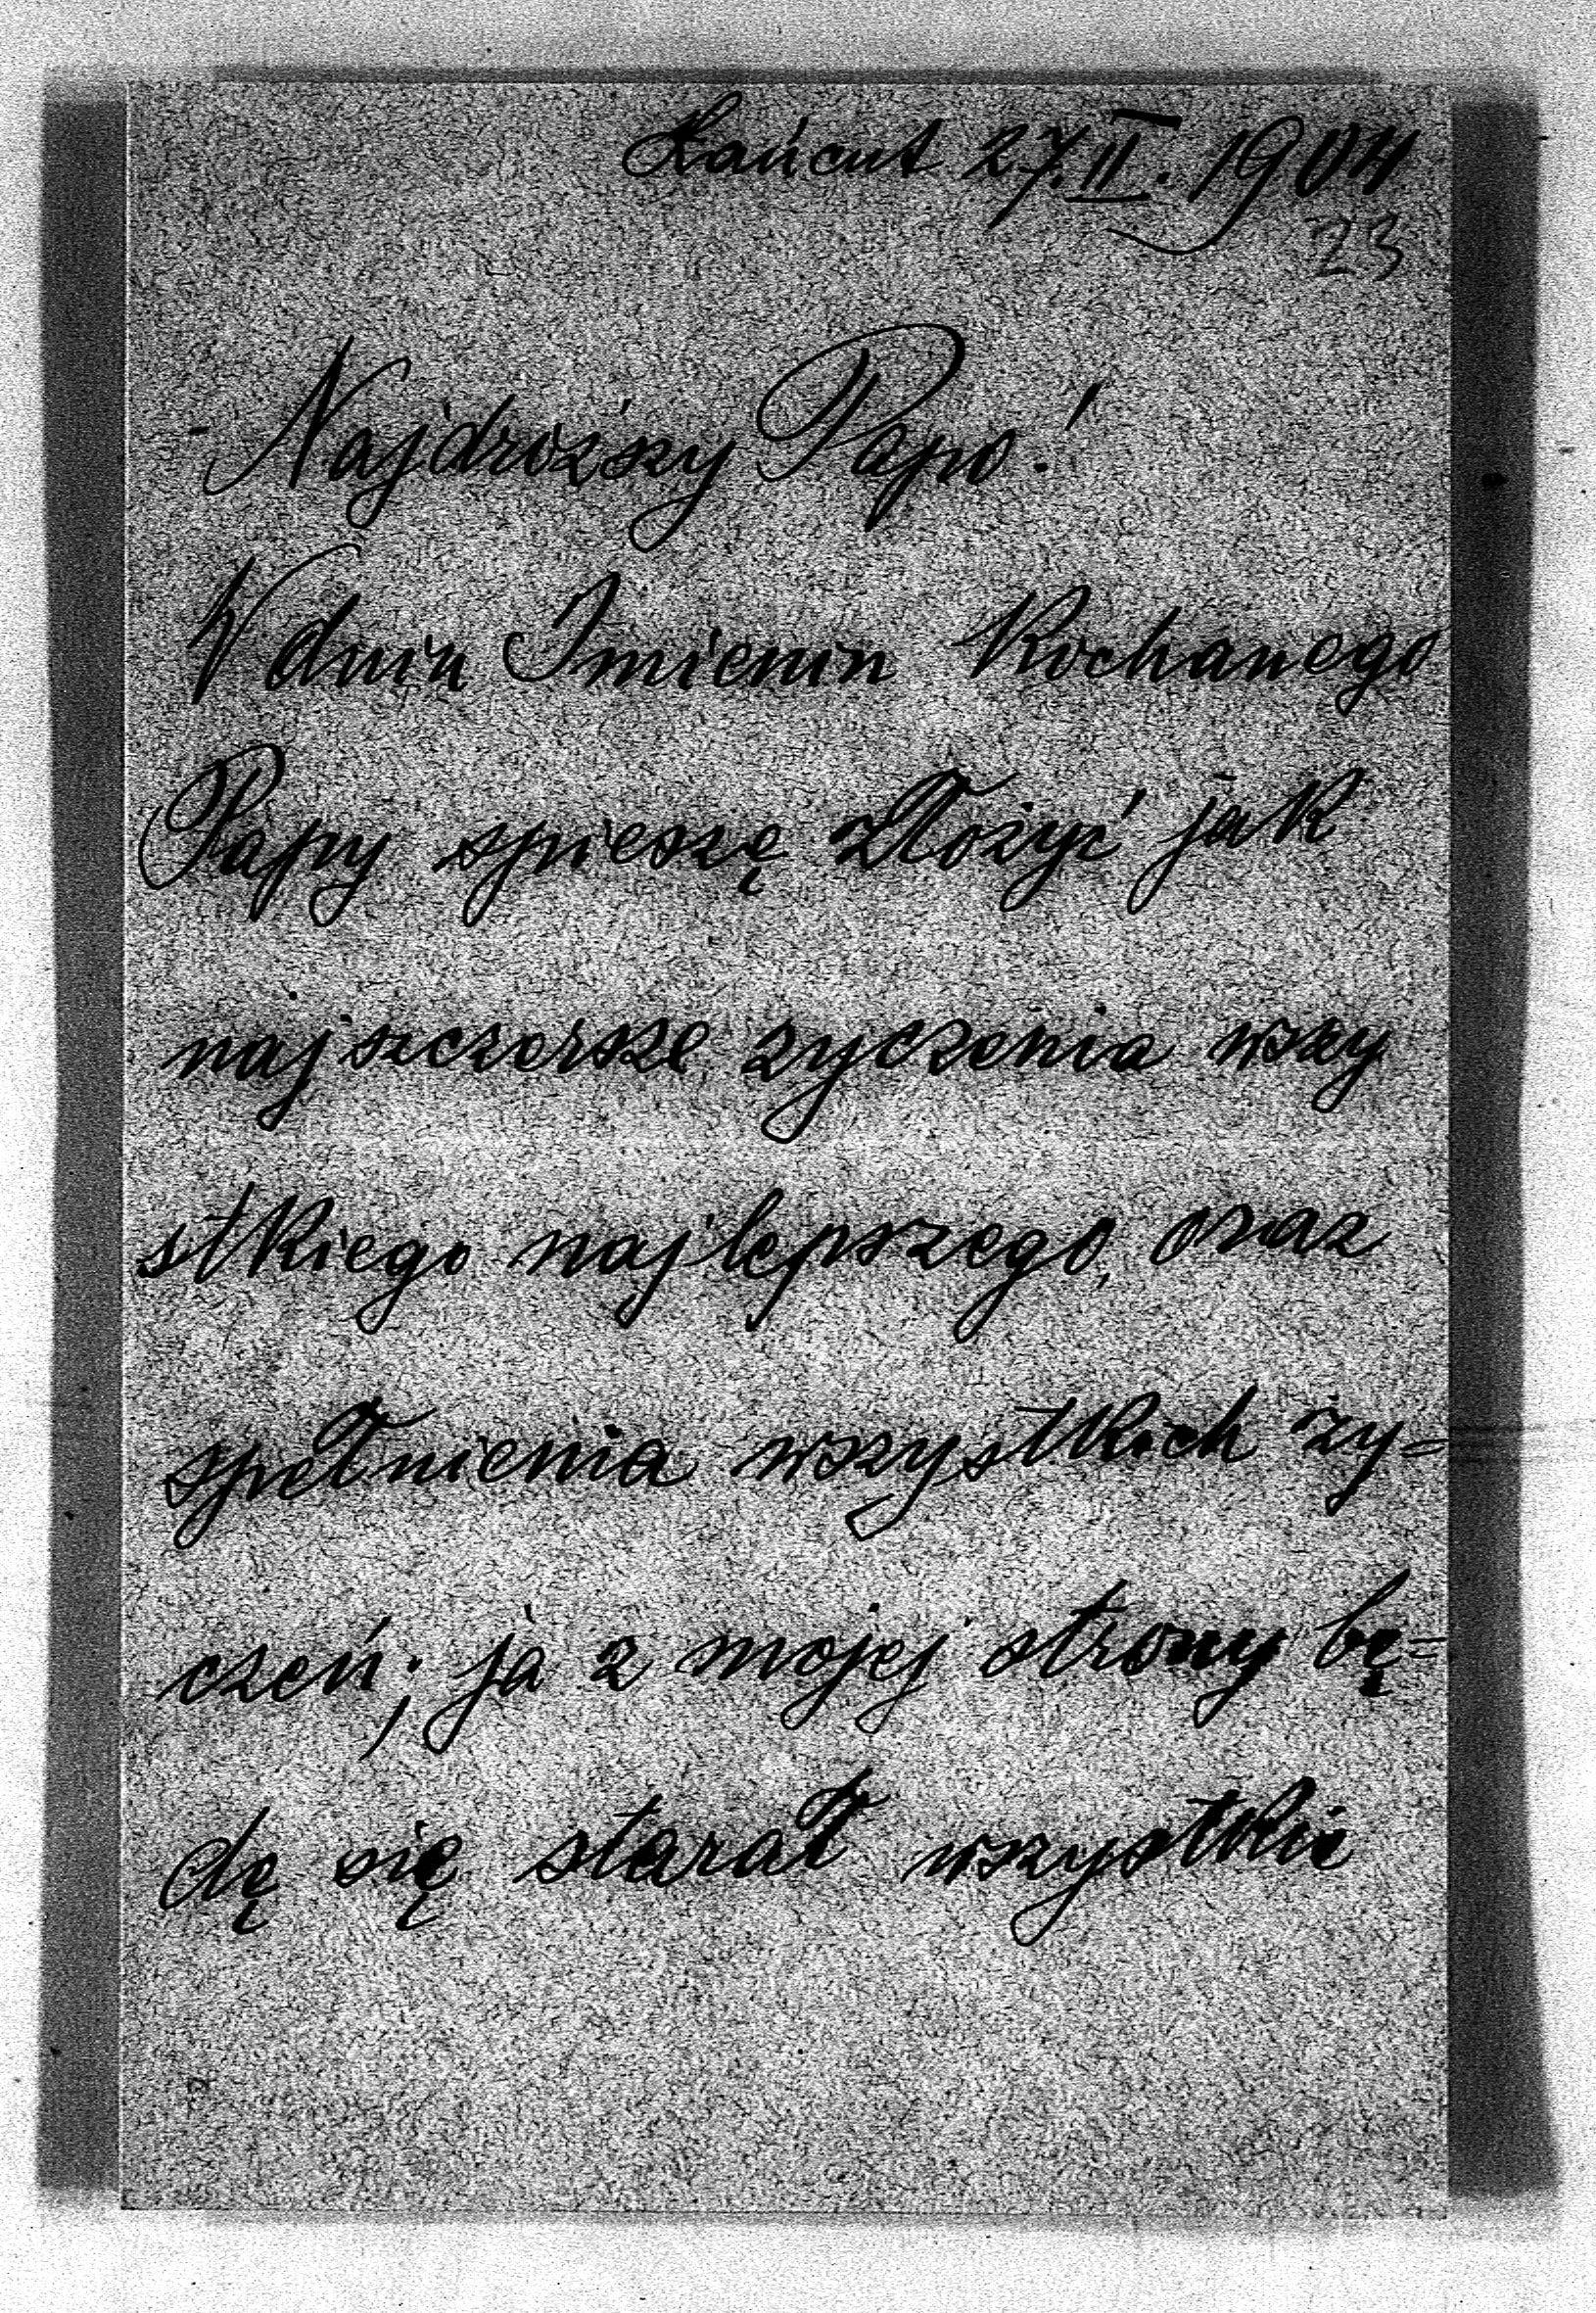 Łańcut 27. II. 1904
23
Najdroższy Papo!
W dniu Imienin Kochanego
Papy spieszę złożyć jak
najszczersze życzenia wszy
stkiego najlepszego, oraz
spełnienia wszystkich ży=
czeń; ja z mojej strony bę=
dę się starał wszystkie